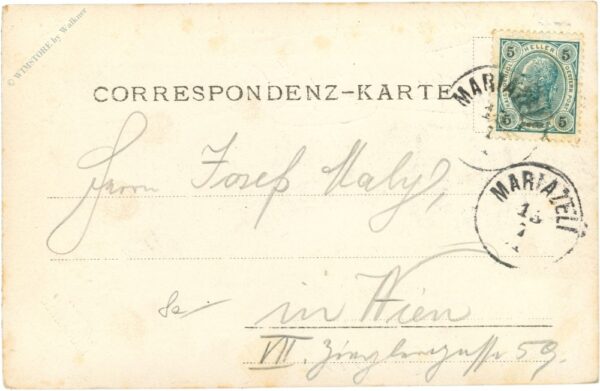 © WIMSTORE by Walkner
5 HELLER 5
5 5
CORRESPONDENZ-KARTE
MARIAZELL
MARIAZELL
13
7
Herrn Josef Maly,
in Wien
VII. Zieglergasse 59.